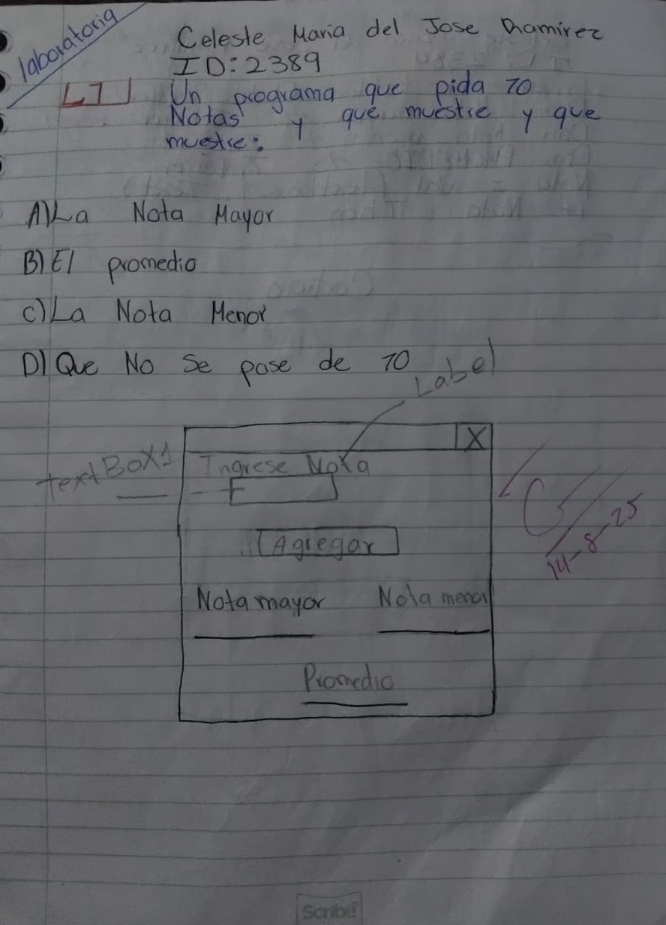 laboratoria
Celeste Maria del Jose Ramirez
ID: 2389
L7
Un programa que pida 10
Notas y que muestre y que
muestre:
A) La Nota Mayor
B) El promedio
C) La Nota Menor
D) Que No Se pase de 10
Label
X
textBox1
Ingrese Nota
Agregar
14-8-25
Nota mayor Nota menor
Promedio
Scribe